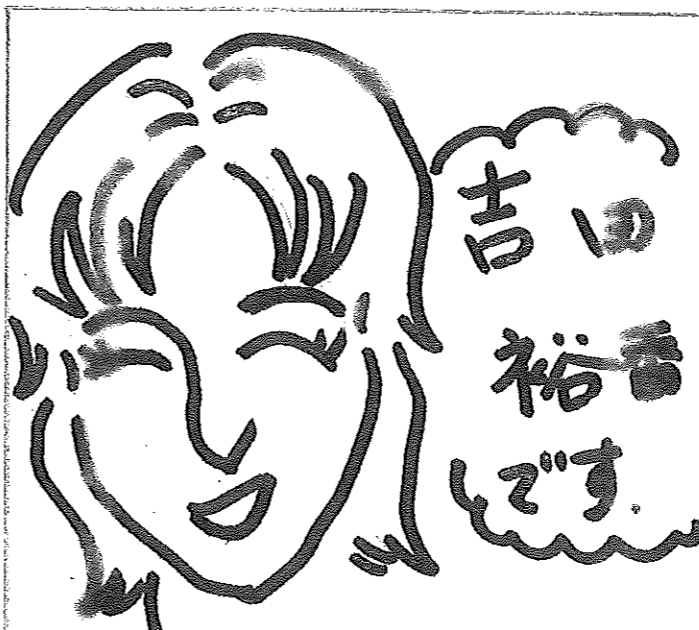 吉田
裕香
です.